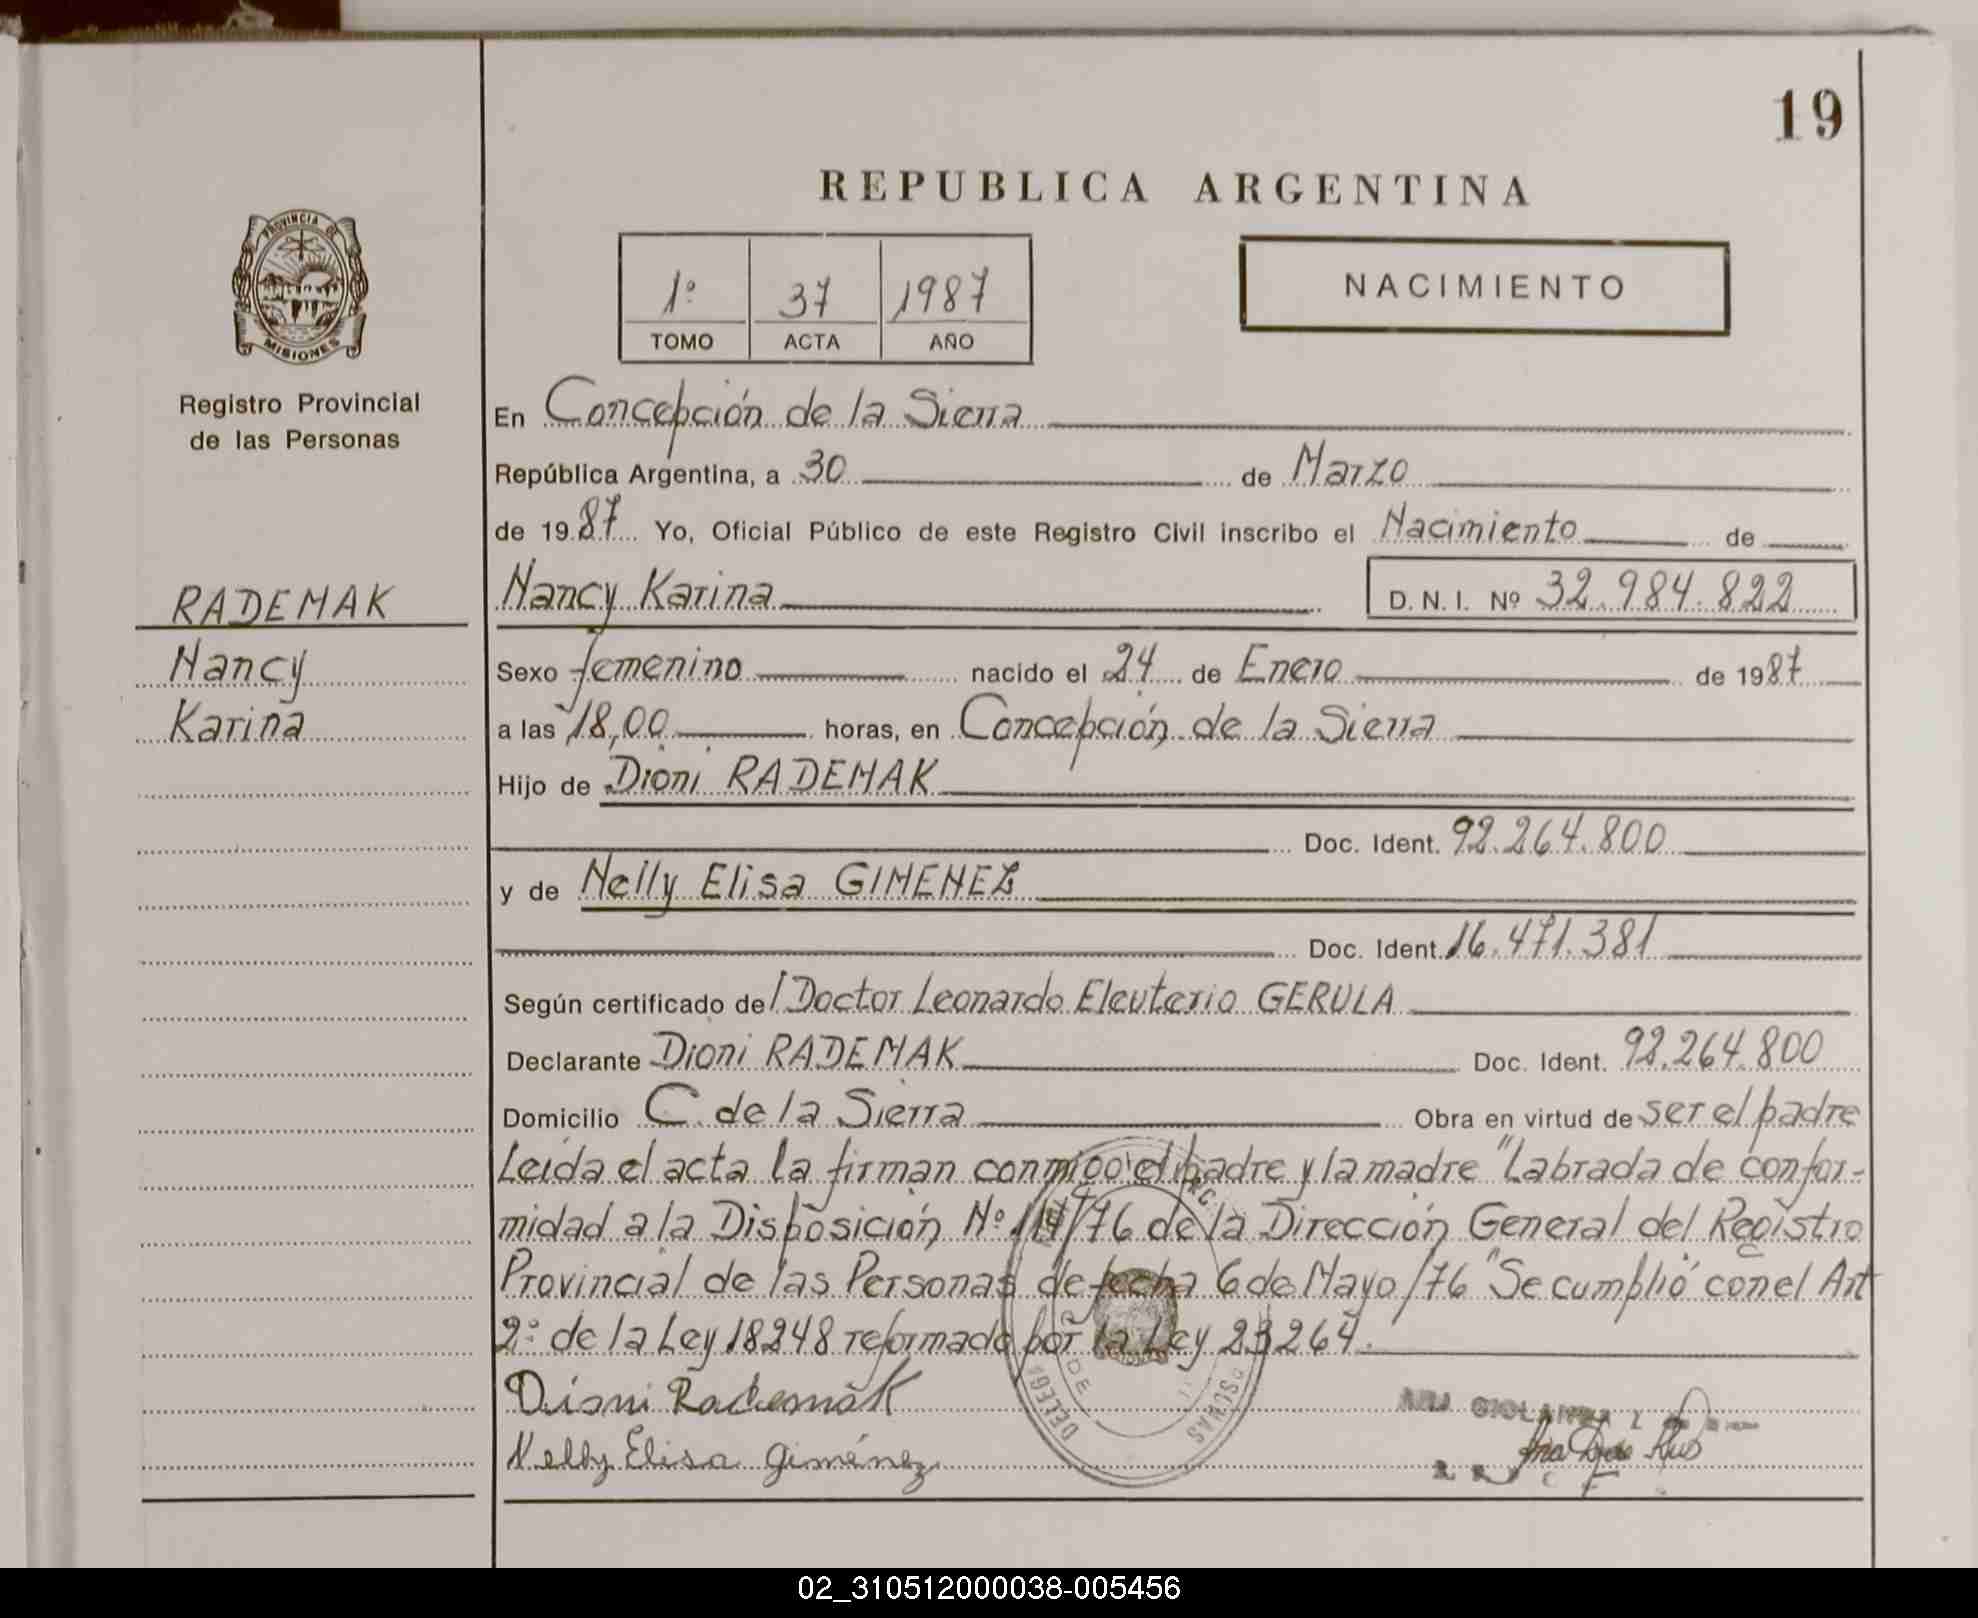 19
REPUBLICA ARGENTINA
PROVINCIA DE
MISIONES
Registro Provincial
de las Personas
1º 37 1987
TOMO ACTA AÑO
NACIMIENTO
En Concepción de la Sierra
República Argentina, a 30 de Marzo
de 1987 Yo, Oficial Público de este Registro Civil inscribo el Nacimiento de
RADEMAK
Nancy
Karina
Nancy Karina D. N. I. Nº 32.984.822
Sexo femenino nacido el 24 de Enero de 1987
a las 18,00 horas, en Concepción de la Sierra
Hijo de Dioni RADEMAK
Doc. Ident. 92.264.800
y de Nelly Elisa GIMENEZ
Doc. Ident. 16.471.381
Según certificado del Doctor Leonardo Eleuterio GERULA
Declarante Dioni RADEMAK Doc. Ident. 92.264.800
Domicilio C. de la Sierra Obra en virtud de ser el padre
Leída el acta la firman conmigo el padre y la madre "Labrada de confor-
midad a la Disposición Nº /76 de la Dirección General del Registro
Provincial de las Personas de fecha 6 de Mayo/76" Se cumplió con el Art
2º de la Ley 18248 reformado por la Ley 23264.
Dioni Rademak
Nelly Elisa Giménez
02_310512000038-005456